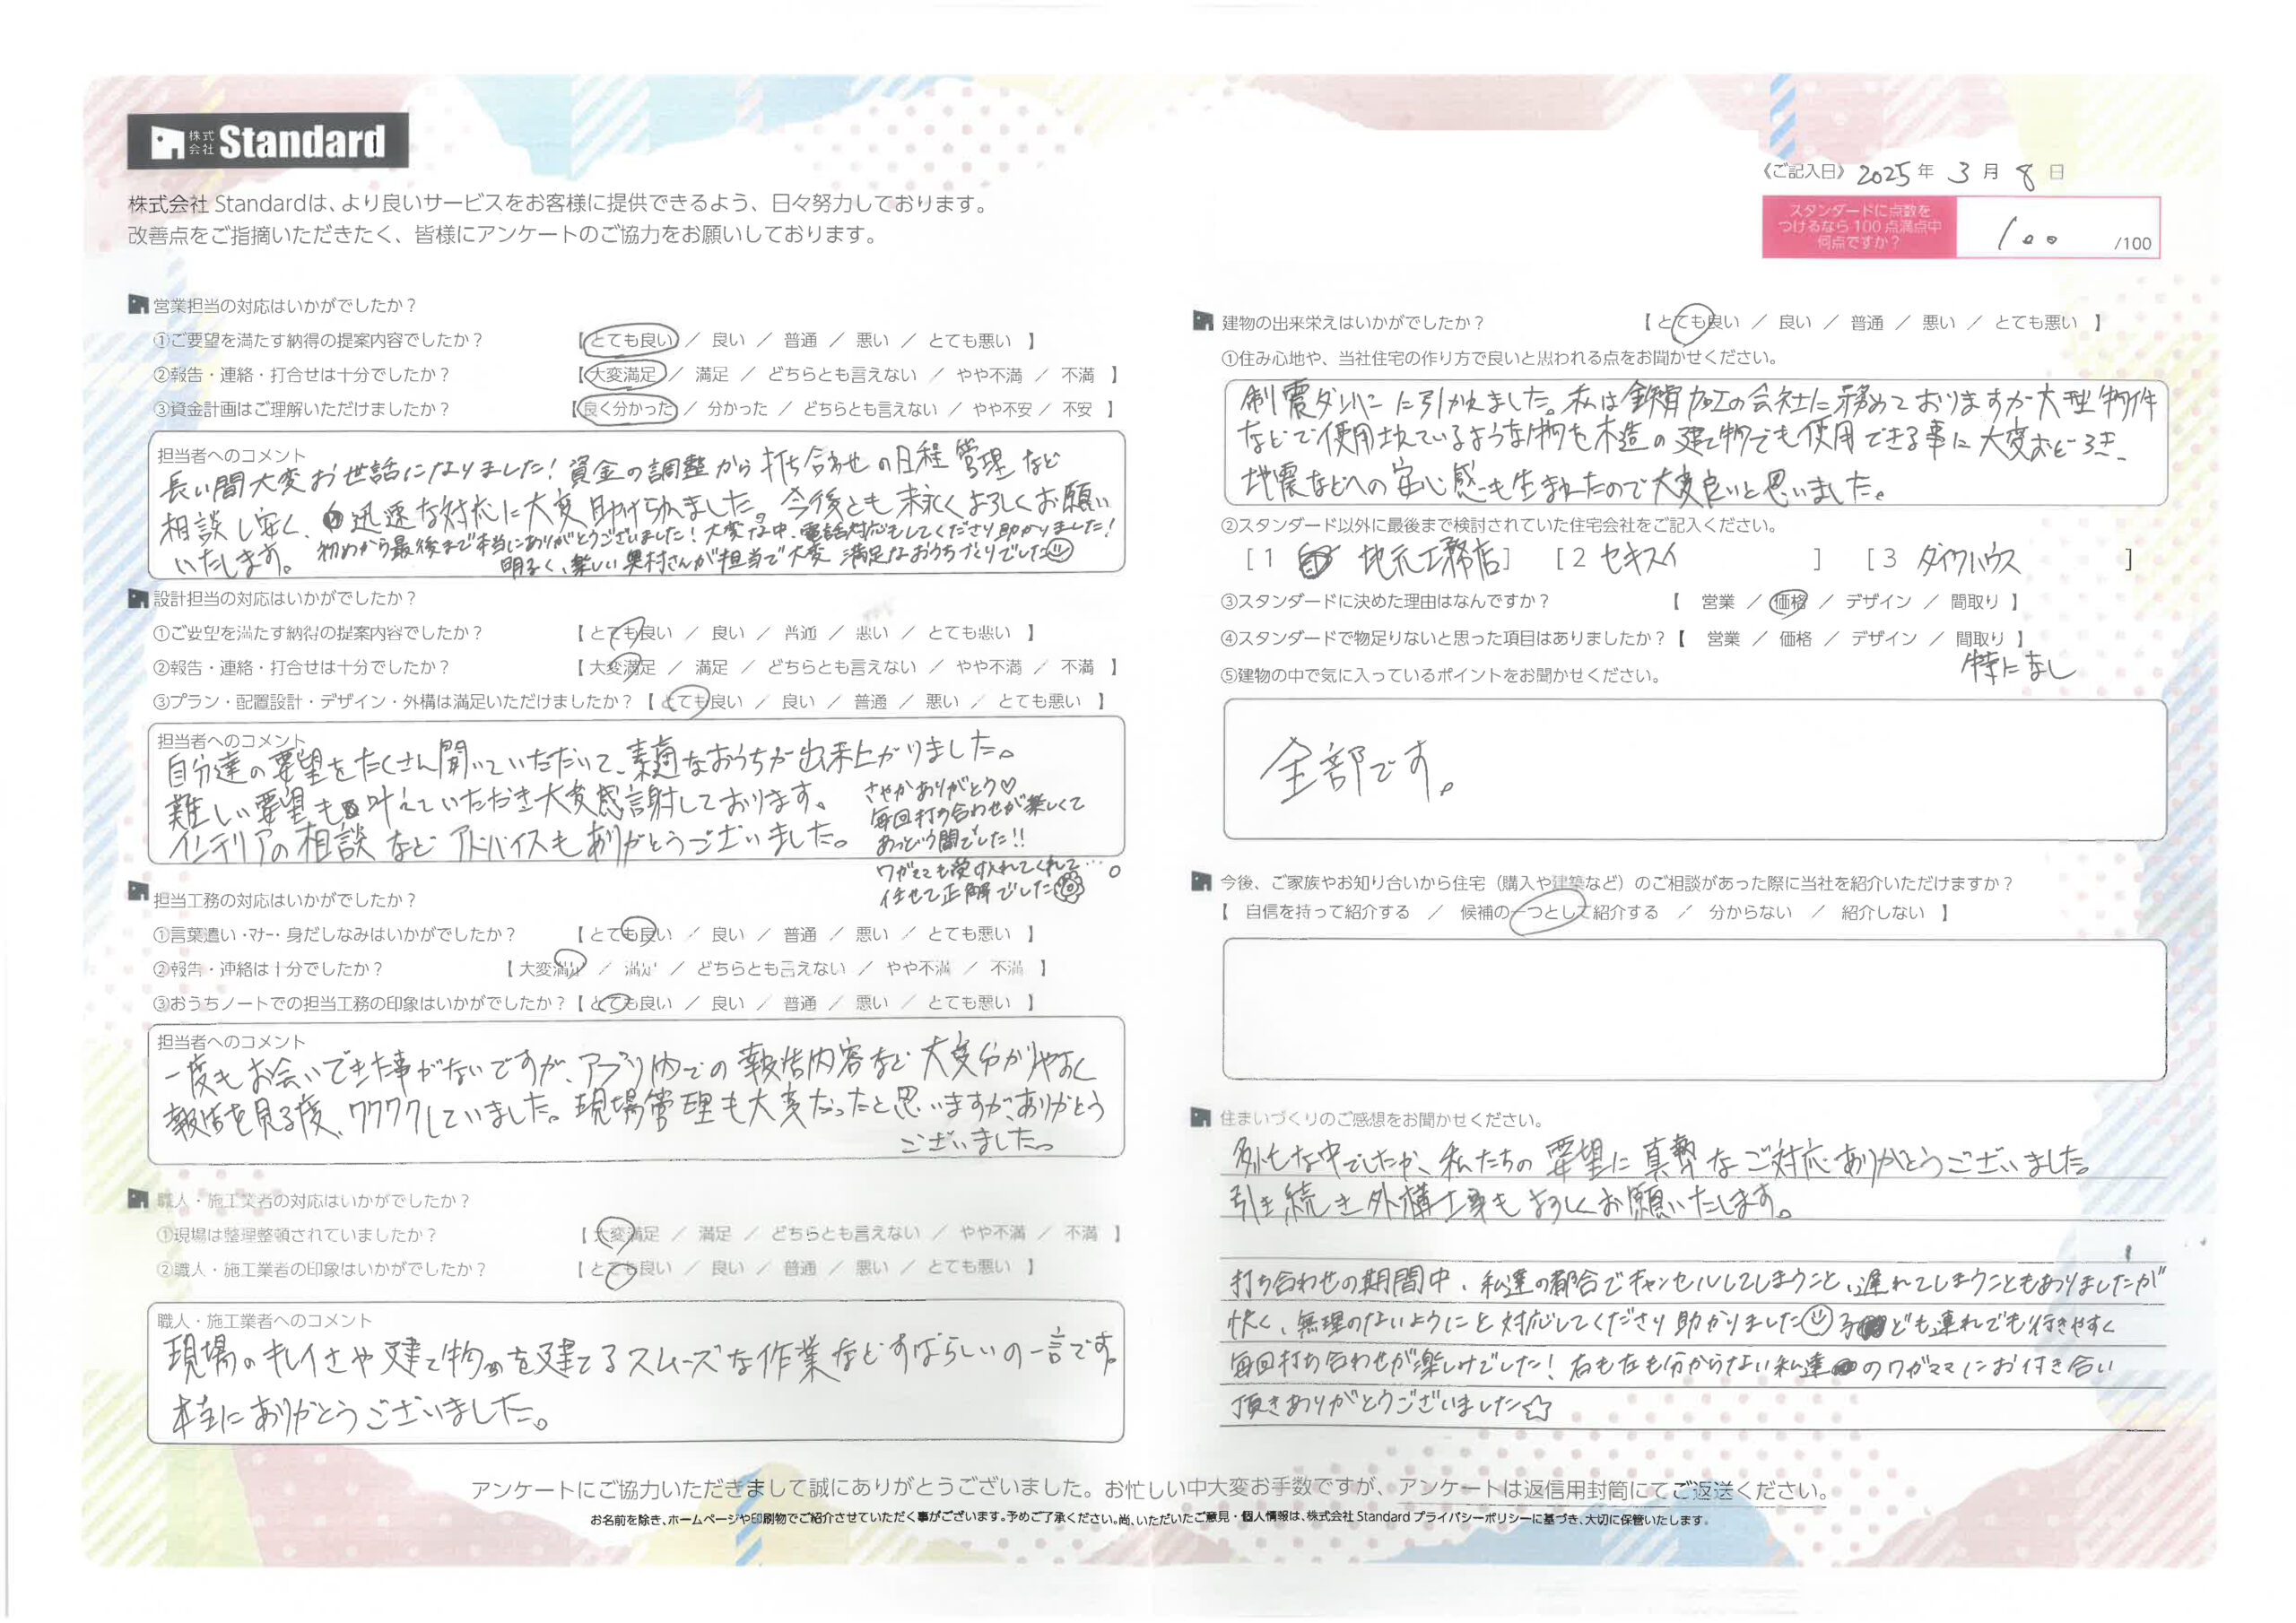 株式会社 Standard
株式会社 Standardは、より良いサービスをお客様に提供できるよう、日々努力しております。
改善点をご指摘いただきたく、皆様にアンケートのご協力をお願いしております。
営業担当の対応はいかがでしたか？
①ご要望を満たす納得の提案内容でしたか？ 【 とても良い ／ 良い ／ 普通 ／ 悪い ／ とても悪い 】
②報告・連絡・打合せは十分でしたか？ 【 大変満足 ／ 満足 ／ どちらとも言えない ／ やや不満 ／ 不満 】
③資金計画はご理解いただけましたか？ 【 良く分かった ／ 分かった ／ どちらとも言えない ／ やや不安 ／ 不安 】
担当者へのコメント
長い間大変お世話になりました！資金の調整から打ち合わせの日程管理など
相談し安く、迅速な対応に大変助かりました。今後とも末永くよろしくお願い
いたします。
初めから最後まで本当にありがとうございました！大変な中、電話対応もしてくださり助かりました！
明るく、楽しい奥村さんが担当で大変満足なおうちづくりでした
設計担当の対応はいかがでしたか？
①ご要望を満たす納得の提案内容でしたか？ 【 とても良い ／ 良い ／ 普通 ／ 悪い ／ とても悪い 】
②報告・連絡・打合せは十分でしたか？ 【 大変満足 ／ 満足 ／ どちらとも言えない ／ やや不満 ／ 不満 】
③プラン・配置設計・デザイン・外構は満足いただけましたか？ 【 とても良い ／ 良い ／ 普通 ／ 悪い ／ とても悪い 】
担当者へのコメント
自分達の要望をたくさん聞いていただいて、素適なおうちが出来上がりました。
難しい要望も叶えていただき大変感謝しております。
インテリアの相談などアドバイスもありがとうございました。
さやかありがとう♡
毎回打ち合わせが楽しくて
あっという間でした!!
ワガママも受け入れてくれて…
任せて正解でした
担当工務の対応はいかがでしたか？
①言葉遣い・マナー・身だしなみはいかがでしたか？ 【 とても良い ／ 良い ／ 普通 ／ 悪い ／ とても悪い 】
②報告・連絡は十分でしたか？ 【 大変満足 ／ 満足 ／ どちらとも言えない ／ やや不満 ／ 不満 】
③おうちノートでの担当工務の印象はいかがでしたか？ 【 とても良い ／ 良い ／ 普通 ／ 悪い ／ とても悪い 】
担当者へのコメント
一度もお会いできた事がないですが、アプリ内での報告内容など大変分かりやすく
報告を見る度、ワクワクしていました。現場管理も大変だったと思いますが、ありがとう
ございました。
職人・施工業者の対応はいかがでしたか？
①現場は整理整頓されていましたか？ 【 大変満足 ／ 満足 ／ どちらとも言えない ／ やや不満 ／ 不満 】
②職人・施工業者の印象はいかがでしたか？ 【 とても良い ／ 良い ／ 普通 ／ 悪い ／ とても悪い 】
職人・施工業者へのコメント
現場のキレイさや建て物を建てるスムーズな作業などすばらしいの一言です。
本当にありがとうございました。
《ご記入日》 2025 年 3 月 8 日
スタンダードに点数を
つけるなら 100 点満点中
何点ですか？
100 /100
建物の出来栄えはいかがでしたか？ 【 とても良い ／ 良い ／ 普通 ／ 悪い ／ とても悪い 】
①住み心地や、当社住宅の作り方で良いと思われる点をお聞かせください。
制震ダンパーに引かれました。私は鉄骨加工の会社に務めておりますが大型物件
などで使用されているような物を木造の建て物でも使用できる事に大変おどろき、
地震などへの安心感も生まれたので大変良いと思いました。
②スタンダード以外に最後まで検討されていた住宅会社をご記入ください。
[ 1 地元工務店 ] [ 2 セキスイ ] [ 3 ダイワハウス ]
③スタンダードに決めた理由はなんですか？ 【 営業 ／ 価格 ／ デザイン ／ 間取り 】
④スタンダードで物足りないと思った項目はありましたか？ 【 営業 ／ 価格 ／ デザイン ／ 間取り 】
特になし
⑤建物の中で気に入っているポイントをお聞かせください。
全部です。
今後、ご家族やお知り合いから住宅（購入や建築など）のご相談があった際に当社を紹介いただけますか？
【 自信を持って紹介する ／ 候補の一つとして紹介する ／ 分からない ／ 紹介しない 】
住まいづくりのご感想をお聞かせください。
多忙な中でしたが、私たちの要望に真摯なご対応ありがとうございました。
引き続き外構工事もよろしくお願いいたします。
打ち合わせの期間中、私達の都合でキャンセルしてしまうこと、遅れてしまうこともありましたが
快く、無理のないようにと対応してくださり助かりました 子ども連れでも行きやすく
毎回打ち合わせが楽しみでした！右も左も分からない私達のワガママにお付き合い
頂きありがとうございました☆
アンケートにご協力いただきまして誠にありがとうございました。お忙しい中大変お手数ですが、アンケートは返信用封筒にてご返送ください。
お名前を除き、ホームページや印刷物でご紹介させていただく事がございます。予めご了承ください。尚、いただいたご意見・個人情報は、株式会社 Standard プライバシーポリシーに基づき、大切に保管いたします。